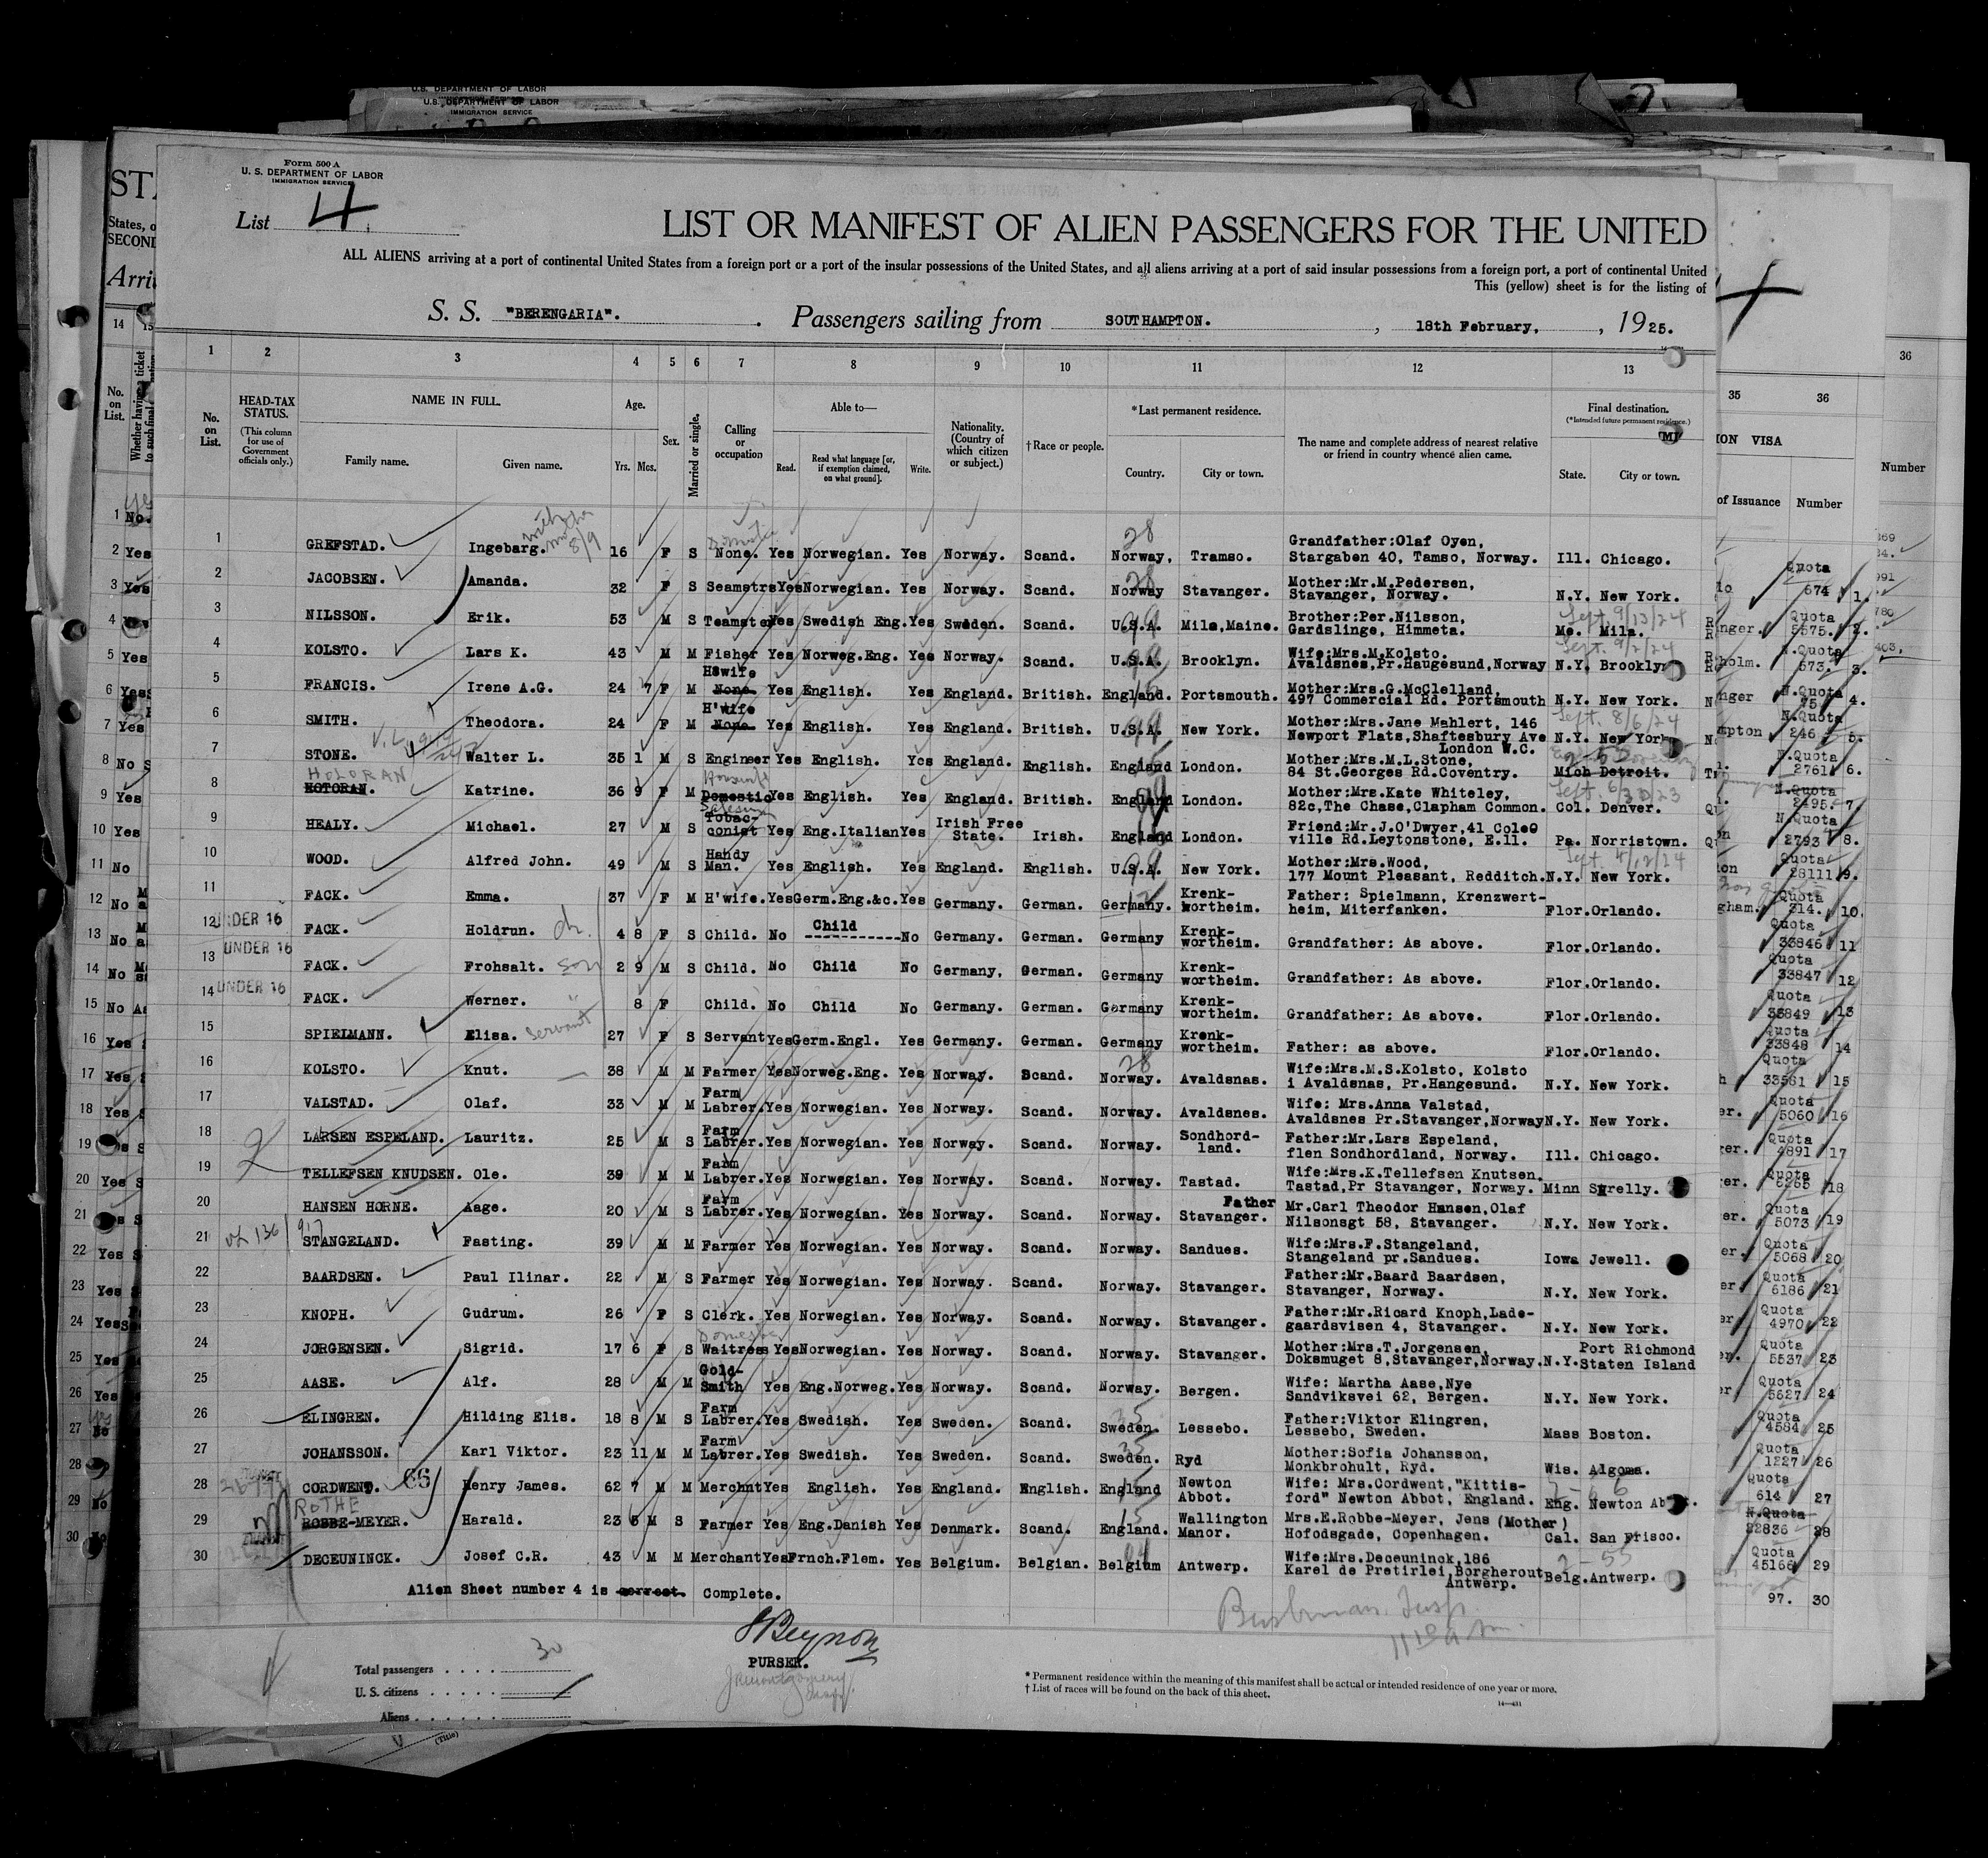 U.S. DEPARTMENT OF LABOR
U.S. DEPARTMENT OF LABOR
IMMIGRATION SERVICE
Form 500 A
U. S. DEPARTMENT OF LABOR
IMMIGRATION SERVICE
List 4
LIST OR MANIFEST OF ALIEN PASSENGERS FOR THE UNITED
ALL ALIENS arriving at a port of continental United States from a foreign port or a port of the insular possessions of the United States, and all aliens arriving at a port of said insular possessions from a foreign port, a port of continental United
This (yellow) sheet is for the listing of
S. S. "BERENGARIA". Passengers sailing from SOUTHAMPTON. , 18th February, , 1925.
1 2 3 4 5 6 7 8 9 10 11 12 13
No. on List. HEAD-TAX STATUS. (This column for use of Government officials only.) NAME IN FULL. Family name. Given name. Age. Yrs. Mos. Sex. Married or single. Calling or occupation Able to— Read. Read what language [or, if exemption claimed, on what ground]. Write. Nationality. (Country of which citizen or subject.) †Race or people. *Last permanent residence. Country. City or town. The name and complete address of nearest relative or friend in country whence alien came. Final destination. (*Intended future permanent residence.) State. City or town.
1 GREFSTAD. Ingebarg. with mother 8/9 16 F S None. Yes Norwegian. Yes Norway. Scand. 28 Norway, Tramso. Grandfather:Olaf Oyen, Stargaben 40, Tamso, Norway. Ill. Chicago.
2 JACOBSEN. Amanda. 32 F S Seamstrs Yes Norwegian. Yes Norway. Scand. 28 Norway Stavanger. Mother:Mr.M.Pedersen, Stavanger, Norway. N.Y. New York.
3 NILSSON. Erik. 53 M S Teamster Yes Swedish Eng. Yes Sweden. Scand. 99 U.S.A. Milo,Maine. Brother:Per.Nilsson, Gardslinge, Himmeta. Sept. 9/13/24 Me. Milo.
4 KOLSTO. Lars K. 43 M M Fisher Yes Norweg.Eng. Yes Norway. Scand. 99 U.S.A. Brooklyn. Wife:Mrs.M.Kolsto. Avaldsnes,Pr.Haugesund,Norway Sept. 9/2/24 N.Y. Brooklyn
5 FRANCIS. Irene A.G. 24 7 F M Hswife None. Yes English. Yes England. British. England. Portsmouth. Mother:Mrs.G.McClelland, 497 Commercial Rd. Portsmouth N.Y. New York.
6 SMITH. Theodora. 24 F M H'wife None. Yes English. Yes England. British. 99 U.S.A. New York. Mother:Mrs.Jane Mahlert, 146 Newport Flats,Shaftesbury Ave London W.C. Sept. 8/6/24 N.Y. New York
7 STONE. Walter L. 35 1 M S Engineer Yes English. Yes England. English. England London. Mother:Mrs.M.L.Stone, 84 St.Georges Rd.Coventry. Mich Detroit.
8 HOLORAN HOTORAN. Katrine. 36 9 F M Housewife Domestic Yes English. Yes England. British. England London. Mother:Mrs.Kate Whiteley, 82c,The Chase,Clapham Common. Col. Denver.
9 HEALY. Michael. 27 M S Salesman Tobac-conist Yes Eng.Italian Yes Irish Free State. Irish. England London. Friend:Mr.J.O'Dwyer,41 Coleo ville Rd.Leytonstone, E.11. Pa. Norristown.
10 WOOD. Alfred John. 49 M S Handy Man. Yes English. Yes England. English. 99 U.S.A. New York. Mother:Mrs.Wood, 177 Mount Pleasant, Redditch. Sept. 4/12/24 N.Y. New York.
11 FACK. Emma. 37 F M H'wife. Yes Germ.Eng.&c. Yes Germany. German. Germany. Krenk-wortheim. Father: Spielmann, Krenzwert-heim, Miterfanken. Flor. Orlando.
12 UNDER 16 FACK. Holdrun. ch. 4 8 F S Child. No Child No Germany. German. Germany Krenk-wortheim. Grandfather: As above. Flor. Orlando.
13 UNDER 16 FACK. Frohsalt. son 2 9 M S Child. No Child No Germany, German. Germany Krenk-wortheim. Grandfather: As above. Flor. Orlando.
14 UNDER 16 FACK. Werner. " 8 F Child. No Child No Germany. German. Germany Krenk-wortheim. Grandfather: As above. Flor. Orlando.
15 SPIELMANN. Elisa. Servant 27 F S Servant Yes Germ.Engl. Yes Germany. German. Germany Krenk-wortheim. Father: as above. Flor. Orlando.
16 KOLSTO. Knut. 38 M M Farmer Yes Norweg.Eng. Yes Norway. Scand. 28 Norway. Avaldsnas. Wife:Mrs.M.S.Kolsto, Kolsto i Avaldsnas, Pr.Hangesund. N.Y. New York.
17 VALSTAD. Olaf. 33 M M Farm Labrer. Yes Norwegian. Yes Norway. Scand. Norway. Avaldsnes. Wife: Mrs.Anna Valstad, Avaldsnes Pr.Stavanger,Norway N.Y. New York.
18 LARSEN ESPELAND. Lauritz. 25 M S Farm Labrer. Yes Norwegian. Yes Norway. Scand. Norway. Sondhord-land. Father:Mr.Lars Espeland, flen Sondhordland, Norway. Ill. Chicago.
19 TELLEFSEN KNUDSEN. Ole. 39 M M Farm Labrer. Yes Norwegian. Yes Norway. Scand. Norway. Tastad. Wife:Mrs.K.Tellefsen Knutsen, Tastad,Pr Stavanger, Norway. Minn
20 HANSEN HORNE. Aage. 20 M S Farm Labrer. Yes Norwegian. Yes Norway. Scand. Norway. Stavanger. Father Mr.Carl Theodor Hansen,Olaf Nilsonsgt 58, Stavanger. N.Y. New York.
21 STANGELAND. Fasting. 39 M M Farmer Yes Norwegian. Yes Norway. Scand. Norway. Sandues. Wife:Mrs.F.Stangeland, Stangeland pr.Sandues. Iowa Jewell.
22 BAARDSEN. Paul Ilinar. 22 M S Farmer Yes Norwegian. Yes Norway. Scand. Norway. Stavanger. Father:Mr.Baard Baardsen, Stavanger, Norway. N.Y. New York.
23 KNOPH. Gudrum. 26 F S Clerk. Yes Norwegian. Yes Norway. Scand. Norway. Stavanger. Father:Mr.Ricard Knoph,Lade-gaardsvisen 4, Stavanger. N.Y. New York.
24 JORGENSEN. Sigrid. 17 6 F S Domestic Waitress Yes Norwegian. Yes Norway. Scand. Norway. Stavanger. Mother:Mrs.T.Jorgensen, Doksmuget 8,Stavanger,Norway. N.Y. Port Richmond Staten Island
25 AASE. Alf. 28 M M Gold-Smith Yes Eng.Norweg. Yes Norway. Scand. Norway. Bergen. Wife: Martha Aase,Nye Sandviksvei 62, Bergen. N.Y. New York.
26 ELINGREN. Hilding Elis. 18 8 M S Farm Labrer. Yes Swedish. Yes Sweden. Scand. 35 Sweden. Lessebo. Father:Viktor Elingren, Lessebo, Sweden. Mass Boston.
27 JOHANSSON. Karl Viktor. 23 11 M M Farm Labrer. Yes Swedish. Yes Sweden. Scand. 35 Sweden. Ryd Mother:Sofia Johansson, Monkbrohult, Ryd. Wis. Algoma.
28 CORDWENT. 66 Henry James. 62 7 M M Merchnt Yes English. Yes England. English. 15 England Newton Abbot. Wife: Mrs.Cordwent,"Kittis-ford" Newton Abbot, England. Eng. Newton
29 ROTHE ROBBE-MEYER. Harald. 23 5 M S Farmer Yes Eng.Danish Yes Denmark. Scand. 15 England. Wallington Manor. Mrs.E.Robbe-Meyer, Jens (Mother) Hofodsgade, Copenhagen. Cal. San Frisco.
30 DECEUNINCK. Josef C.R. 43 M M Merchant Yes Frnch.Flem. Yes Belgium. Belgian. Belgium Antwerp. Wife:Mrs.Deceuninck,186 Karel de Pretirlei,Borgherout Antwerp. 2-55 Belg. Antwerp.
Alien Sheet number 4 is correct. Complete.
Beynon
PURSER.
Total passengers . . . . 30
U. S. citizens . . . . .
Aliens . . . . . .
* Permanent residence within the meaning of this manifest shall be actual or intended residence of one year or more.
† List of races will be found on the back of this sheet.
(Title)
STA
States, o
SECOND
Arri
14 15
No. on List.
Whether having a ticket to such final
35 36
ION VISA
of Issuance Number
36
Number
Quota 574 1.
Quota 5575. 2.
N.Quota 573. 3.
N.Quota 4.
N.Quota 246 5.
N.Quota 2761 6.
N.Quota 2495. 7
N.Quota 2793 8.
Quota 28111 9.
Quota 314. 10.
Quota 33846 11
Quota 33847 12
Quota 33849 13
Quota 33848 14
Quota 33561 15
Quota 5060 16
Quota 4891 17
Quota 18
Quota 5073 19
Quota 5068 20
Quota 6186 21
Quota 4970 22
Quota 5537 23
Quota 5627 24
Quota 4584 25
Quota 1227 26
Quota 614 27
N.Quota 22836 28
Quota 45166 29
97. 30